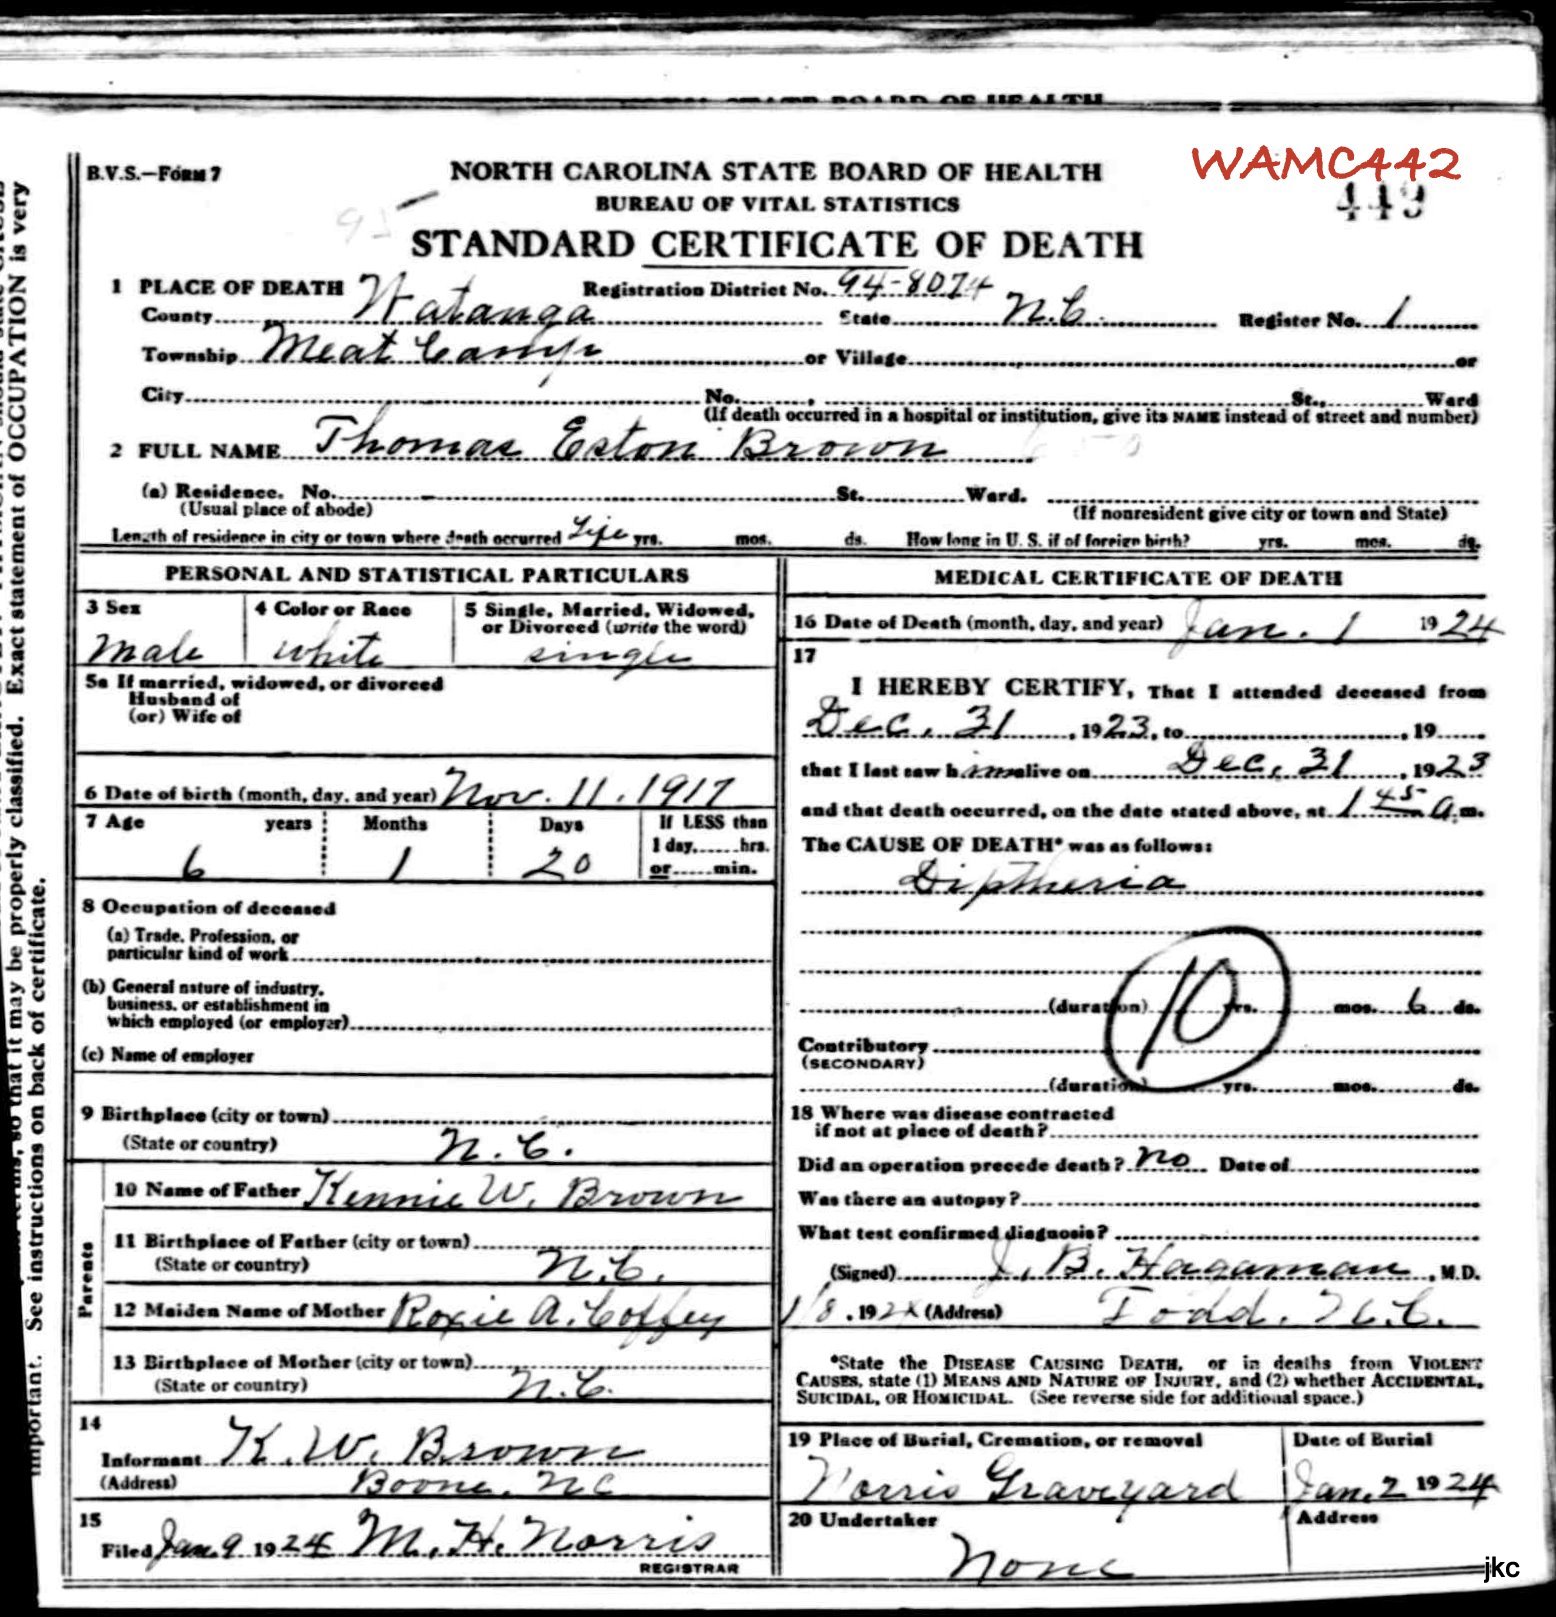 STATE BOARD OF HEALTH
B.V.S.—FORM 7
NORTH CAROLINA STATE BOARD OF HEALTH
WAMC442
449
BUREAU OF VITAL STATISTICS
95
STANDARD CERTIFICATE OF DEATH
1 PLACE OF DEATH Registration District No. 94-8074
County Watauga State N.C. Register No. 1
Township Meat Camp or Village or
City No. , St., Ward
(If death occurred in a hospital or institution, give its NAME instead of street and number)
2 FULL NAME Thomas Eston Brown
(a) Residence. No. St. Ward.
(Usual place of abode) (If nonresident give city or town and State)
Length of residence in city or town where death occurred Life yrs. mos. ds. How long in U. S. if of foreign birth? yrs. mos. ds.
PERSONAL AND STATISTICAL PARTICULARS
3 Sex 4 Color or Race 5 Single, Married, Widowed,
or Divorced (write the word)
Male white single
5a If married, widowed, or divorced
Husband of
(or) Wife of
6 Date of birth (month, day, and year) Nov. 11. 1917
7 Age years Months Days If LESS than
1 day, hrs.
6 1 20 or min.
8 Occupation of deceased
(a) Trade, Profession, or
particular kind of work
(b) General nature of industry,
business, or establishment in
which employed (or employer)
(c) Name of employer
9 Birthplace (city or town)
(State or country) N. C.
Parents
10 Name of Father Kennie W. Brown
11 Birthplace of Father (city or town)
(State or country) N.C.
12 Maiden Name of Mother Roxie A. Coffey
13 Birthplace of Mother (city or town)
(State or country) N.C.
14
Informant K. W. Brown
(Address) Boone, NC
15
Filed Jan. 9 1924 M. H. Norris
REGISTRAR
MEDICAL CERTIFICATE OF DEATH
16 Date of Death (month, day, and year) Jan. 1 1924
17
I HEREBY CERTIFY, That I attended deceased from
Dec. 31 , 1923, to , 19
that I last saw him alive on Dec. 31 , 1923
and that death occurred, on the date stated above, at 1 45 a.m.
The CAUSE OF DEATH* was as follows:
Diptheria
10
(duration) yrs. mos. 6 ds.
Contributory
(SECONDARY)
(duration) yrs. mos. ds.
18 Where was disease contracted
if not at place of death?
Did an operation precede death? No Date of
Was there an autopsy?
What test confirmed diagnosis?
(Signed) J. B. Hagaman , M.D.
1/8 , 1924 (Address) Todd, N.C.
*State the DISEASE CAUSING DEATH, or in deaths from VIOLENT
CAUSES, state (1) MEANS AND NATURE OF INJURY, and (2) whether ACCIDENTAL,
SUICIDAL, OR HOMICIDAL. (See reverse side for additional space.)
19 Place of Burial, Cremation, or removal Date of Burial
Norris Graveyard Jan. 2 1924
20 Undertaker Address
None
jkc
so that it may be properly classified. Exact statement of OCCUPATION is very
important. See instructions on back of certificate.